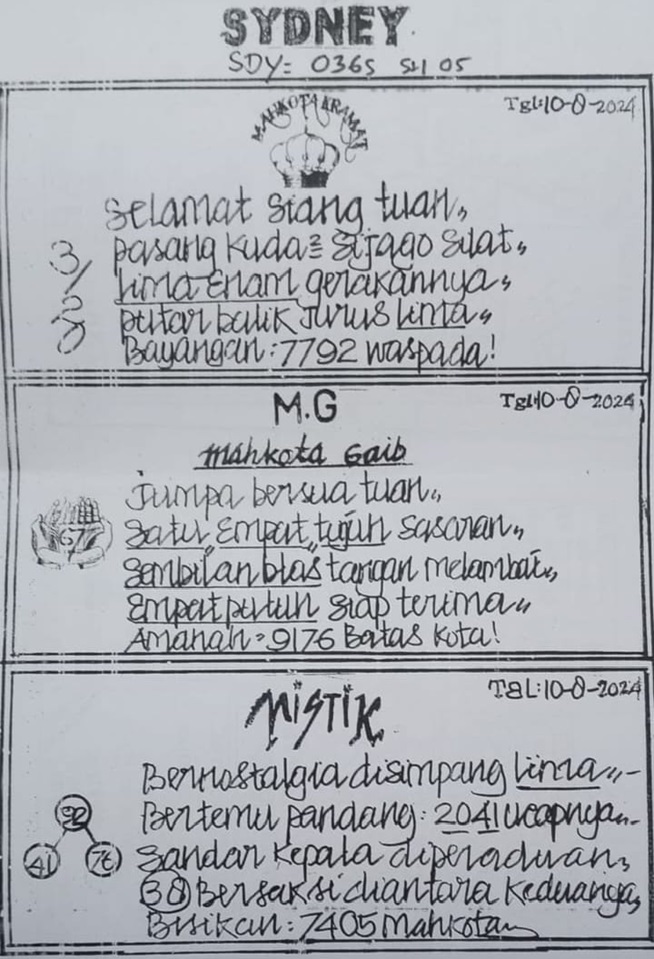 SYDNEY
SDY= 0365 SH 05
MAHKOTA KRAMAT
Tgl:10-8-2024
Selamat Siang tuan,,
pasang kuda² Sijago Silat,,
lima Enam gerakannya,,
putar balik Jurus lima,,
Bayangan: 7792 waspada!
M.G
Tgl:10-8-2024
Mahkota Gaib
Jumpa bersua tuan,,
Satu,, Empat,, tujuh sasaran,,
67
Sembilan blas tangan melambai,,
Empat puluh siap terima,,
Amanah = 9176 Batas Kota!
MISTIK
TGL:10-8-2024
Bernostalgia disimpang lima,,-
Bertemu pandang: 2041 ucapnya,,-
32
41 76
Sandar Kepala diperaduan,,
38 Bersaksi diantara Keduanya,,
Bisikan: 7405 Mahkota